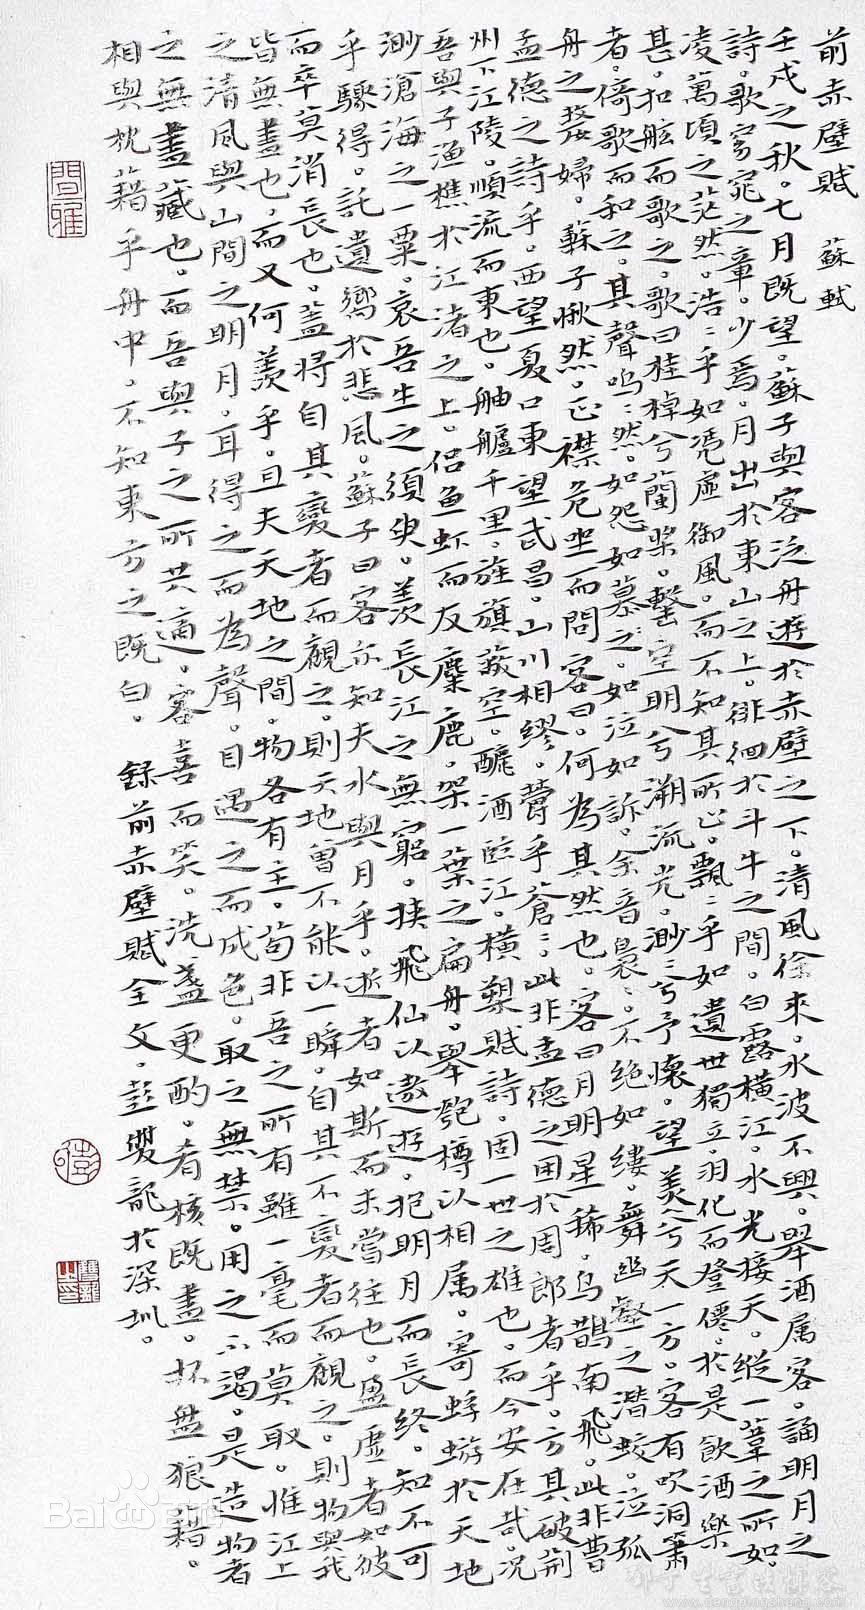 前赤壁賦 蘇軾
壬戌之秋。七月既望。蘇子與客泛舟遊於赤壁之下。清風徐來。水波不興。舉酒属客。誦明月之
詩。歌窈窕之章。少焉。月出於東山之上。徘徊於斗牛之間。白露橫江。水光接天。縱一葦之所如。
凌萬頃之茫然。浩〻乎如馮虛御風。而不知其所止。飄〻乎如遺世獨立。羽化而登僊。於是飲酒樂
甚。扣舷而歌之。歌曰桂棹兮蘭槳。擊空明兮溯流光。渺〻兮予懷。望美人兮天一方。客有吹洞簫
者。倚歌而和之。其聲嗚〻然。如怨如慕。如泣如訴。余音裊〻。不绝如缕。舞幽壑之潜蛟。泣孤
舟之嫠婦。蘇子愀然。正襟危坐而問客曰。何為其然也。客曰月明星稀。烏鵲南飛。此非曹
孟德之詩乎。西望夏口東望武昌。山川相繆。鬱乎蒼〻。此非孟德之困於周郎者乎。方其破荊
州下江陵。順流而東也。舳艫千里。旌旗蔽空。釃酒臨江。橫槊賦詩。固一世之雄也。而今安在哉。况
吾與子漁樵於江渚之上。侣鱼虾而友麋鹿。架一葉之扁舟。舉匏樽以相属。寄蜉蝣於天地
渺滄海之一粟。哀吾生之须臾。羨長江之無窮。挟飛仙以遨遊。抱明月而長终。知不可
乎驟得。託遺響於悲風。蘇子曰客亦知夫水與月乎。逝者如斯而未嘗往也。盈虛者如彼
而卒莫消長也。蓋将自其變者而觀之。則天地曾不能以一瞬。自其不變者而觀之。則物與我
皆無盡也。而又何羨乎。且夫天地之間。物各有主。苟非吾之所有雖一毫而莫取。惟江上
之清風與山間之明月。耳得之而為聲。目遇之而成色。取之無禁。用之不竭。是造物者
之無盡藏也。而吾與子之所共適。客喜而笑。洗盞更酌。肴核既盡。杯盤狼藉。
相與枕藉乎舟中。不知東方之既白。 錄前赤壁賦全文。彭雙龍於深圳。
彭
雙龍之印
Bai百科
www.dengpingsheng.com